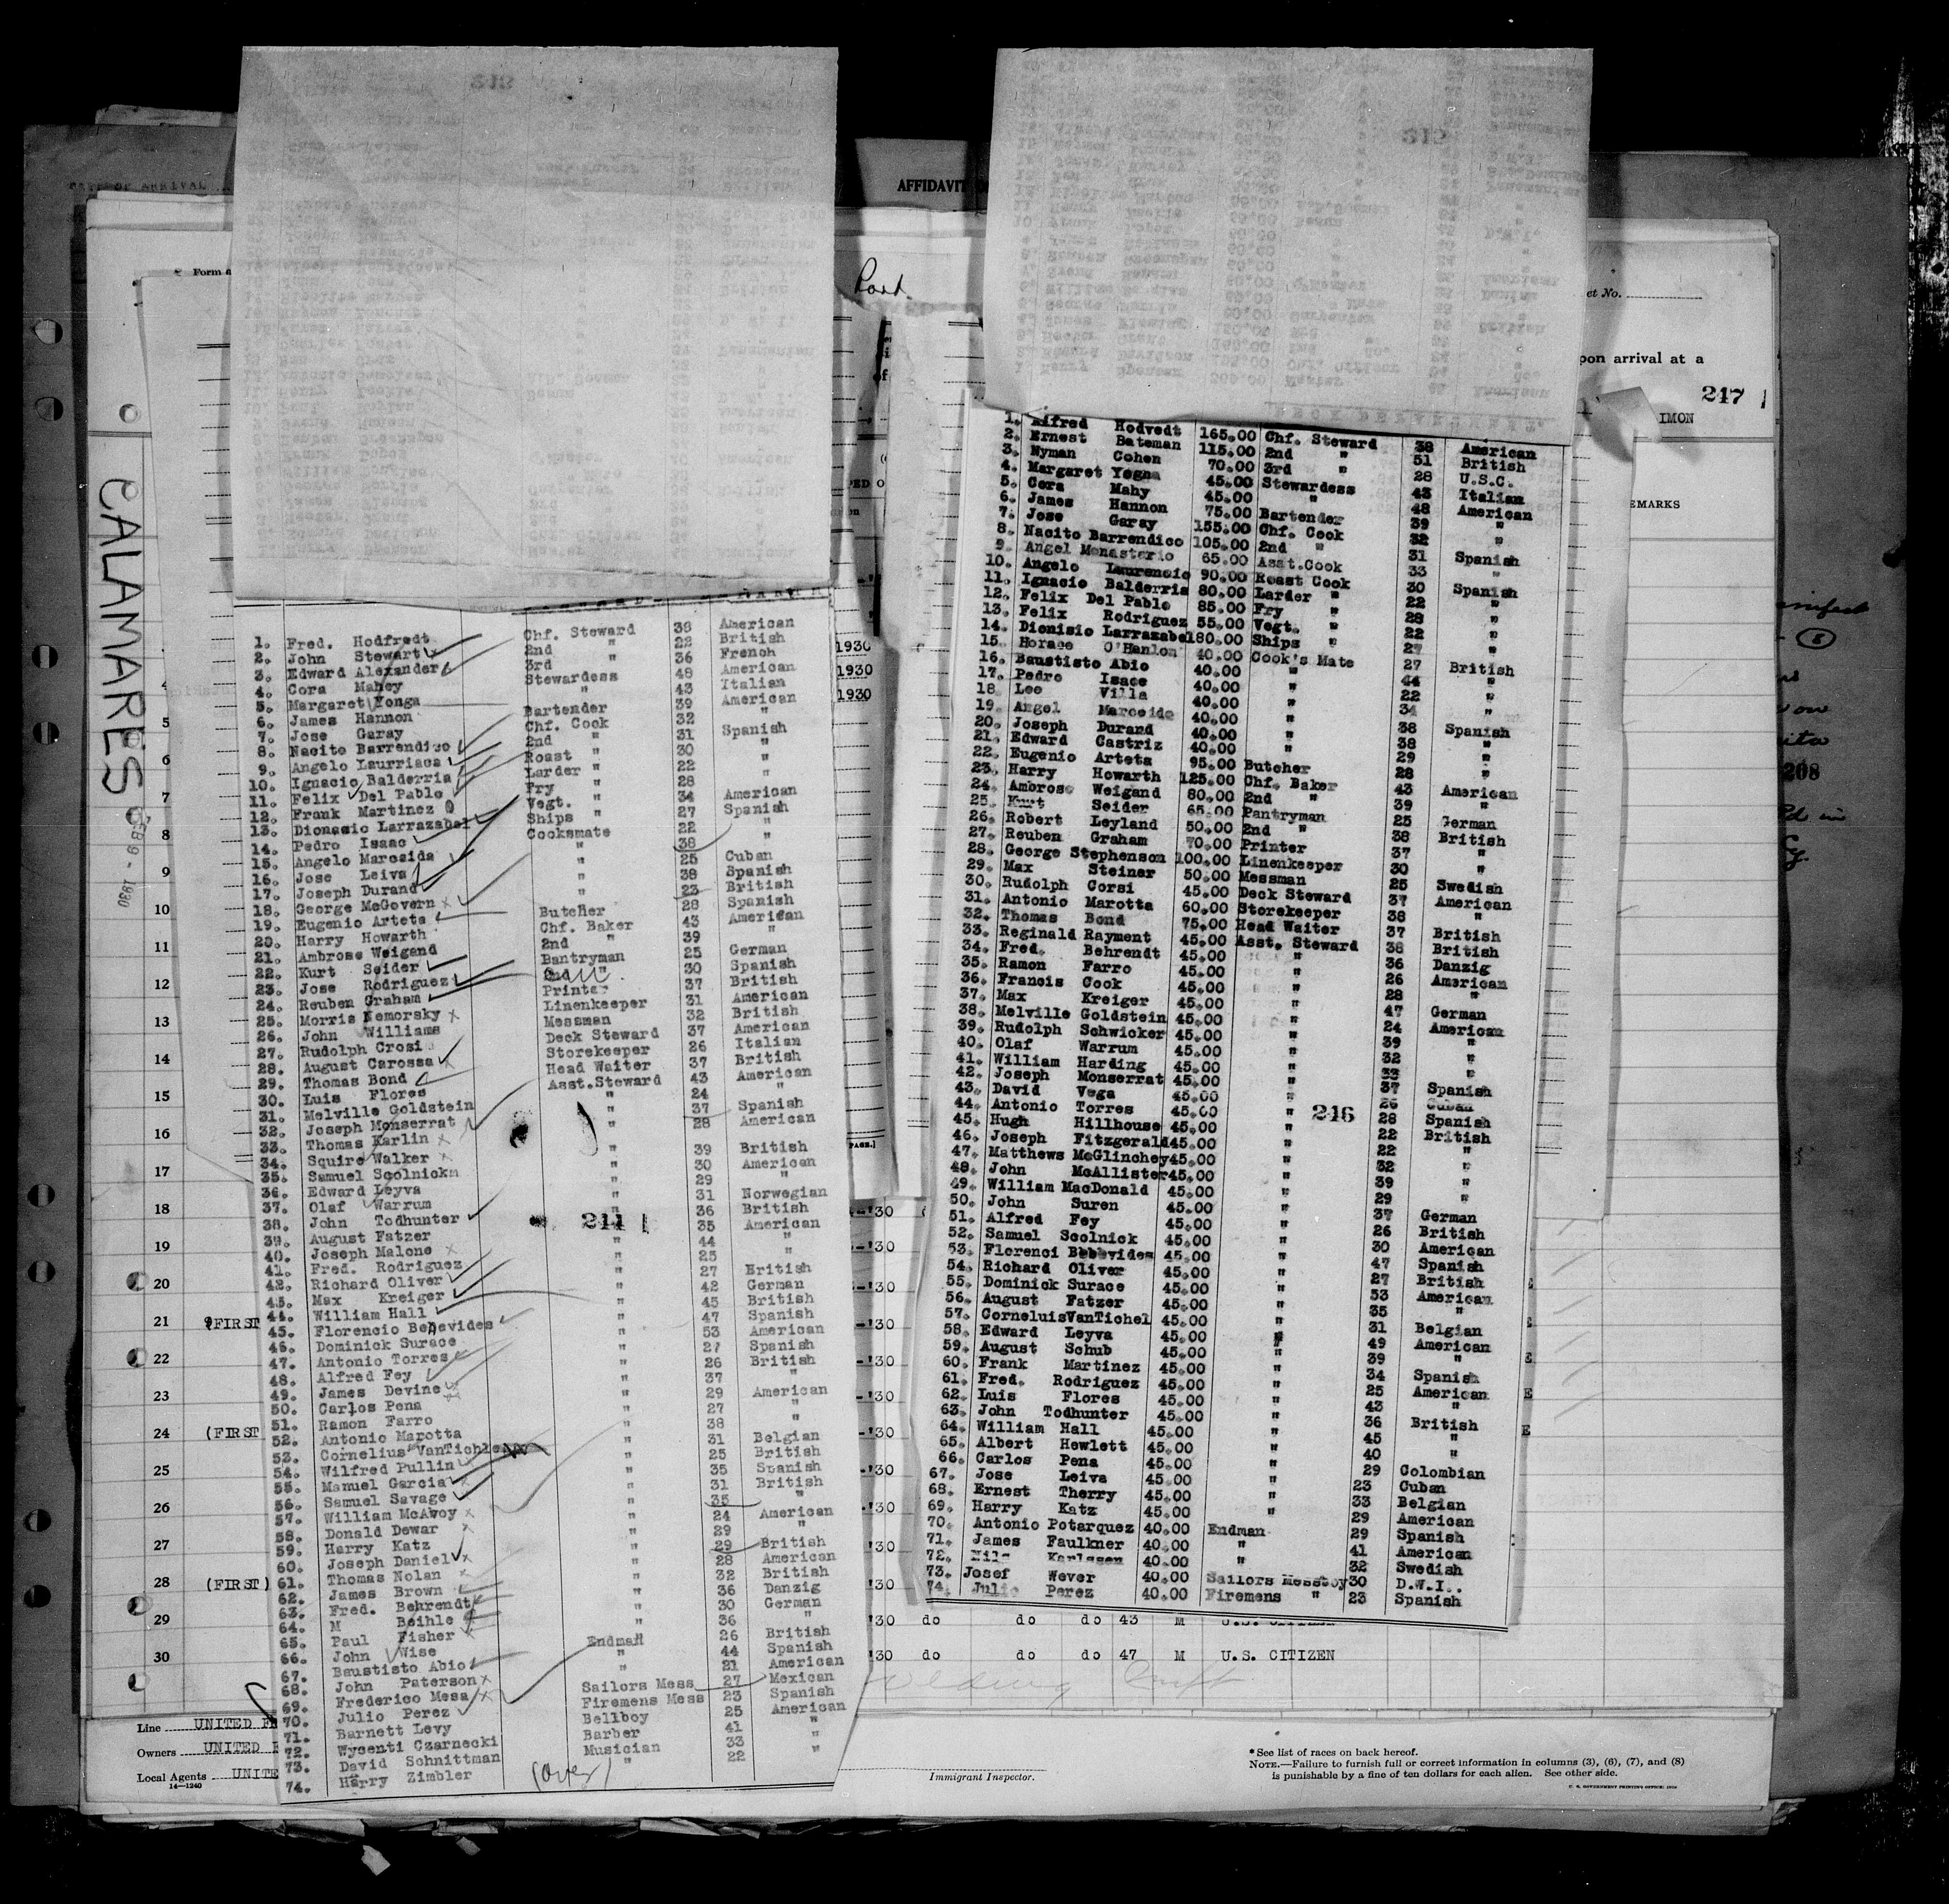 AFFIDAVIT
Form
Port.
et No.
pon arrival at a
247
IMON
EMARKS
CALAMARES
FEB 9 - 1930
1. Fred. Hodfredt Chf. Steward 38 American
2. John Stewart 2nd " 22 British
3. Edward Alexander 3rd " 36 French
4. Cora Mahey Stewardess 48 American
5. Margaret Yonga 43 Italian
6. James Hannon Bartender 39 American
7. Jose Garay Chf. Cook 32 "
8. Nacito Barrendico 2nd " 31 Spanish
9. Angelo Laurriaca Roast " 30 "
10. Ignacio Balderria Larder " 22 "
11. Felix Del Pablo Fry " 28 "
12. Frank Martinez Vegt. " 34 American
13. Dionasio Larrazabal Ships " 27 Spanish
14. Pedro Isaac Cooksmate 22 "
15. Angelo Marozida " 38 "
16. Jose Leiva " 25 Cuban
17. Joseph Durand " 38 Spanish
18. George McGovern " 23 British
19. Eugenio Arteta Butcher 28 Spanish
20. Harry Howarth Chf. Baker 43 American
21. Ambrose Weigand 2nd " 39 "
22. Kurt Seider Pantryman 25 German
23. Jose Rodriguez 2nd " 30 Spanish
24. Reuben Graham Printer 37 British
25. Morris Nemorsky Linenkeeper 31 American
26. John Williams Messman 32 British
27. Rudolph Crosi Deck Steward 37 American
28. August Carossa Storekeeper 26 Italian
29. Thomas Bond Head Waiter 37 British
30. Luis Flores Asst.Steward 43 American
31. Melville Goldstein " 24 "
32. Joseph Monserrat " 37 Spanish
33. Thomas Karlin " 28 American
34. Squire Walker " 39 British
35. Samuel Scolnickm " 30 American
36. Edward Leyva " 29 "
37. Olaf Warrum " 31 Norwegian
38. John Todhunter " 36 British
39. August Fatzer " 35 American
40. Joseph Malone " 44 "
41. Fred. Rodriguez " 25 "
42. Richard Oliver " 27 British
43. Max Kreiger " 42 German
44. William Hall " 45 British
45. Florencio Benevides " 47 Spanish
46. Dominick Surace " 53 American
47. Antonio Torres " 27 Spanish
48. Alfred Fey " 26 British
49. James Devine " 37 "
50. Carlos Pena " 29 American
51. Ramon Farro " 27 "
52. Antonio Marotta " 38 "
53. Cornelius VanTichlen " 31 Belgian
54. Wilfred Pullin " 25 British
55. Manuel Garcia " 35 Spanish
56. Samuel Savage " 31 British
57. William McAvoy " 35 "
58. Donald Dewar " 24 American
59. Harry Katz " 29 "
60. Joseph Daniel " 29 British
61. Thomas Nolan " 28 American
62. James Brown " 32 British
63. Fred. Behrendt " 36 Danzig
64. M Beihle " 30 German
65. Paul Fisher " 36 "
66. John Wise Endman 26 British
67. Baustisto Abio " 44 Spanish
68. John Paterson " 21 American
69. Frederico Mesa Sailors Mess 27 Mexican
70. Julio Perez Firemens Mess 23 Spanish
71. Barnett Levy Bellboy 25 American
72. Wysenti Czarnecki Barber 41 "
73. David Schnittman Musician 33 "
74. Harry Zimbler " 22 "
(over)
244
1. Alfred Hodvedt 165.00 Chf. Steward 38 American
2. Ernest Bateman 115.00 2nd " 51 British
3. Hyman Cohen 70.00 3rd " 28 U.S.C.
4. Margaret Yogna 45.00 Stewardess 43 Italian
5. Cora Mahy 45.00 " 48 American
6. James Hannon 75.00 Bartender 39 "
7. Jose Garay 155.00 Chf. Cook 32 "
8. Nacito Barrendico 105.00 2nd " 31 Spanish
9. Angel Monasterio 65.00 Asst.Cook 33 "
10. Angelo Laurencio 90.00 Roast Cook 30 Spanish
11. Ignacio Balderria 80.00 Larder " 22 "
12. Felix Del Pablo 85.00 Fry " 28 "
13. Felix Rodriguez 55.00 Vegt. " 22 "
14. Dionisio Larrazabel 80.00 Ships " 27 "
15. Horace O'Hanlon 40.00 Cook's Mate 27 British
16. Baustisto Abio 40.00 " 44 "
17. Pedro Isace 40.00 " 22 "
18. Lee Villa 40.00 " 34 "
19. Angel Marceida 40.00 " 38 Spanish
20. Joseph Durand 40.00 " 38 "
21. Edward Castriz 40.00 " 29 "
22. Eugenio Arteta 95.00 Butcher 28 "
23. Harry Howarth 125.00 Chf. Baker 43 American
24. Ambrose Weigand 80.00 2nd " 39 "
25. Kurt Seider 65.00 Pantryman 25 German
26. Robert Leyland 50.00 2nd " 38 British
27. Reuben Graham 70.00 Printer 37 "
28. George Stephenson 100.00 Linenkeeper 30 "
29. Max Steiner 50.00 Messman 25 Swedish
30. Rudolph Corsi 45.00 Deck Steward 37 American
31. Antonio Marotta 60.00 Storekeeper 38 "
32. Thomas Bond 75.00 Head Waiter 37 British
33. Reginald Rayment 45.00 Asst. Steward 38 British
34. Fred. Behrendt 45.00 " 36 Danzig
35. Ramon Farro 45.00 " 26 American
36. Francis Cook 45.00 " 28 "
37. Max Kreiger 45.00 " 47 German
38. Melville Goldstein 45.00 " 24 American
39. Rudolph Schwicker 45.00 " 39 "
40. Olaf Warrum 45.00 " 32 "
41. William Harding 45.00 " 33 "
42. Joseph Monserrat 45.00 " 37 Spanish
43. David Vega 45.00 " 26 Cuban
44. Antonio Torres 45.00 " 28 Spanish
45. Hugh Hillhouse 45.00 " 22 British
46. Joseph Fitzgerald 45.00 " 22 "
47. Matthews McGlinchey 45.00 " 32 "
48. John McAllister 45.00 " 39 "
49. William MacDonald 45.00 " 29 "
50. John Suren 45.00 " 37 German
51. Alfred Fey 45.00 " 26 British
52. Samuel Scolnick 45.00 " 30 American
53. Florenci Benevides 45.00 " 47 Spanish
54. Richard Oliver 45.00 " 27 British
55. Dominick Surace 45.00 " 53 American
56. August Fatzer 45.00 " 35 "
57. CorneluisVanTichel 45.00 " 31 Belgian
58. Edward Leyva 45.00 " 49 American
59. August Schub 45.00 " 39 "
60. Frank Martinez 45.00 " 34 Spanish
61. Fred. Rodriguez 45.00 " 25 American
62. Luis Flores 45.00 " 43 "
63. John Todhunter 45.00 " 36 British
64. William Hall 45.00 " 45 "
65. Albert Hewlett 45.00 " 40 "
66. Carlos Pena 45.00 " 29 Colombian
67. Jose Leiva 45.00 " 23 Cuban
68. Ernest Therry 45.00 " 33 Belgian
69. Harry Katz 45.00 " 29 American
70. Antonio Potarquez 40.00 Endman 29 Spanish
71. James Faulkner 40.00 " 41 American
72. Nils Karlssen 40.00 " 32 Swedish
73. Josef Wever 40.00 Sailors Messboy 30 D.W.I.
74. Julio Perez 40.00 Firemens " 23 Spanish
246
1930
1930
1930
208
5
6
7
8
9
10
11
12
13
14
15
16
17
18
19
20
21 (FIRST
22
23
24 (FIRST
25
26
27
28 (FIRST)
29 '30 do do do 43 M U.S. CITIZEN
30 '30 do do do 47 M U.S. CITIZEN
Line UNITED
Owners UNITED
Local Agents UNITE
14—1240
Immigrant Inspector.
*See list of races on back hereof.
NOTE.—Failure to furnish full or correct information in columns (3), (6), (7), and (8)
is punishable by a fine of ten dollars for each alien. See other side.